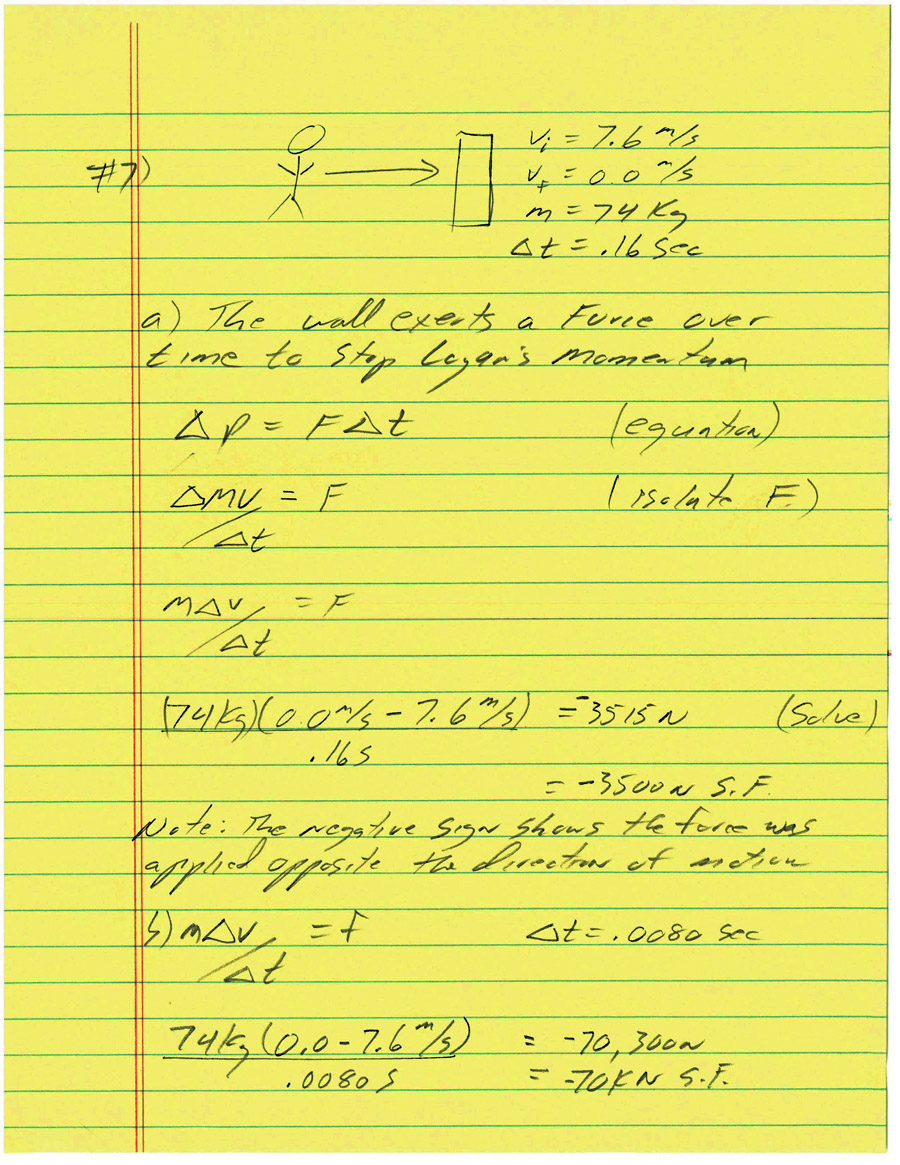 #7)
vᵢ = 7.6 m/s
v_F = 0.0 m/s
m = 74 Kg
Δt = .16 Sec
a) The wall exerts a Force over
time to Stop Logan's Momentum
Δp = FΔt (equation)
ΔMV/Δt = F (isolate F.)
mΔv/Δt = F
(74Kg)(0.0 m/s - 7.6 m/s) = -3515 N (Solve)
.16s
= -3500N S.F.
Note: The negative sign shows the force was
applied opposite the direction of motion
b) mΔv/Δt = F Δt = .0080 sec
74kg (0.0 - 7.6 m/s) = -70,300N
.0080 S = -70KN S.F.